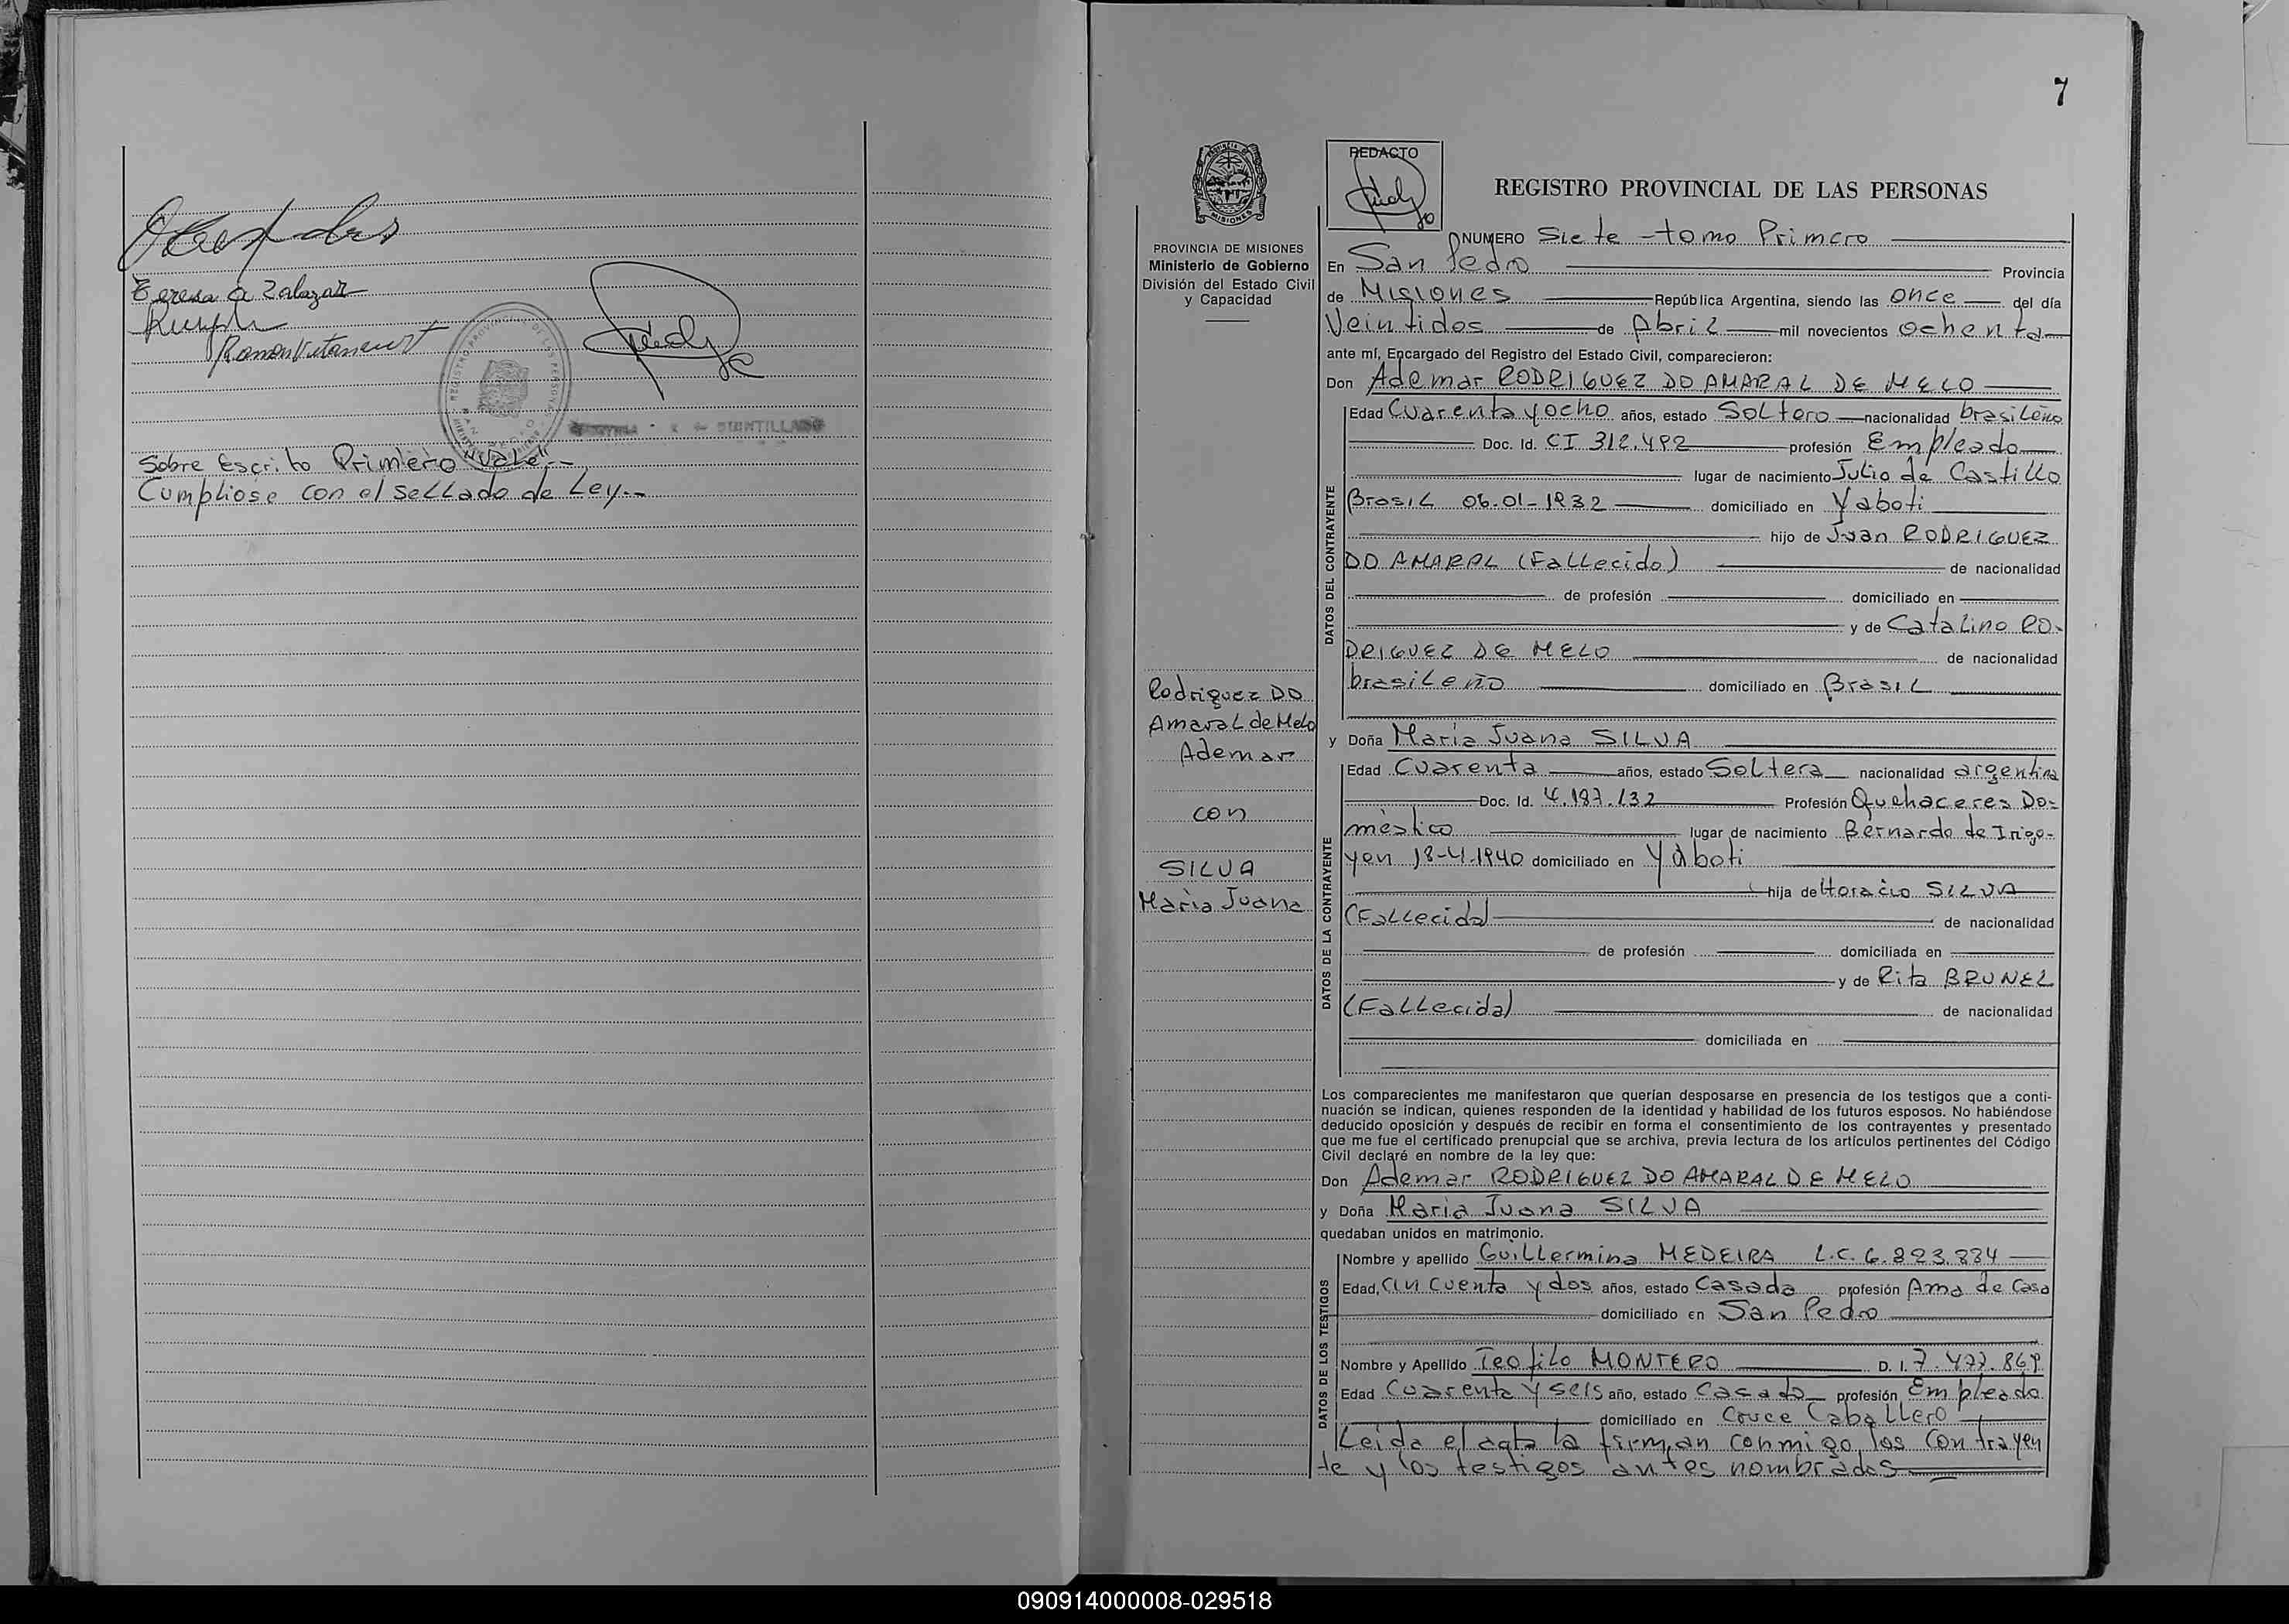 Teresa A Zalazar
Sobre Escrito Primero Vale.-
Cumpliose con el sellado de Ley.-
7
REDACTO
REGISTRO PROVINCIAL DE LAS PERSONAS
PROVINCIA DE MISIONES
Ministerio de Gobierno
División del Estado Civil
y Capacidad
NUMERO Siete - tomo Primero
En San Pedro Provincia
de Misiones República Argentina, siendo las once del día
Veintidos de Abril mil novecientos ochenta
ante mí, Encargado del Registro del Estado Civil, comparecieron:
Don Ademar RODRIGUEZ DO AMARAL DE MELO
DATOS DEL CONTRAYENTE
Edad Cuarenta y ocho años, estado Soltero nacionalidad brasileño
Doc. Id. CI 312.492 profesión Empleado
lugar de nacimiento Julio de Castillo
Brasil 06-01-1932 domiciliado en Yaboti
hijo de Juan RODRIGUEZ
DO AMARAL (Fallecido) de nacionalidad
de profesión domiciliado en
y de Catalino RO-
DRIGUEZ DE MELO de nacionalidad
brasileño domiciliado en Brasil
Rodriguez DO
Amaral de Melo
Ademar
con
SILVA
Maria Juana
y Doña Maria Juana SILVA
DATOS DE LA CONTRAYENTE
Edad Cuarenta años, estado Soltera nacionalidad argentina
Doc. Id. 4.187.132 Profesión Quehaceres Do-
mestico lugar de nacimiento Bernardo de Irigo-
yen 18-4-1940 domiciliado en Yaboti
hija de Horacio SILVA
(Fallecido) de nacionalidad
de profesión domiciliada en
y de Rita BRUNEL
(Fallecida) de nacionalidad
domiciliada en
Los comparecientes me manifestaron que querían desposarse en presencia de los testigos que a conti-
nuación se indican, quienes responden de la identidad y habilidad de los futuros esposos. No habiéndose
deducido oposición y después de recibir en forma el consentimiento de los contrayentes y presentado
que me fue el certificado prenupcial que se archiva, previa lectura de los artículos pertinentes del Código
Civil declaré en nombre de la ley que:
Don Ademar RODRIGUEZ DO AMARAL DE MELO
y Doña Maria Juana SILVA
quedaban unidos en matrimonio.
DATOS DE LOS TESTIGOS
Nombre y apellido Guillermina MEDEIRA L.C. 6.823.884
Edad, Cincuenta y dos años, estado Casada profesión Ama de Casa
domiciliado en San Pedro
Nombre y Apellido Teofilo MONTERO D. I. 7.477.869
Edad Cuarenta y seis año, estado Casado profesión Empleado
domiciliado en Cruce Caballero
Leida el acta la firman conmigo los contrayen
te y los testigos antes nombrados
090914000008-029518